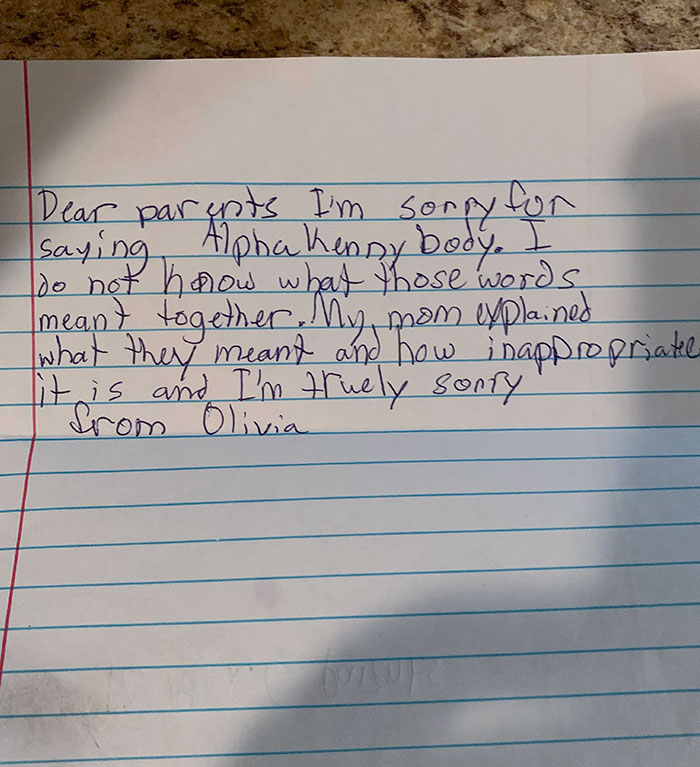 Dear parents I'm sorry for
saying Alpha Kenny body. I
do not know what those words
meant together. My mom explained
what they meant and how inappropriate
it is and I'm truely sorry
from Olivia